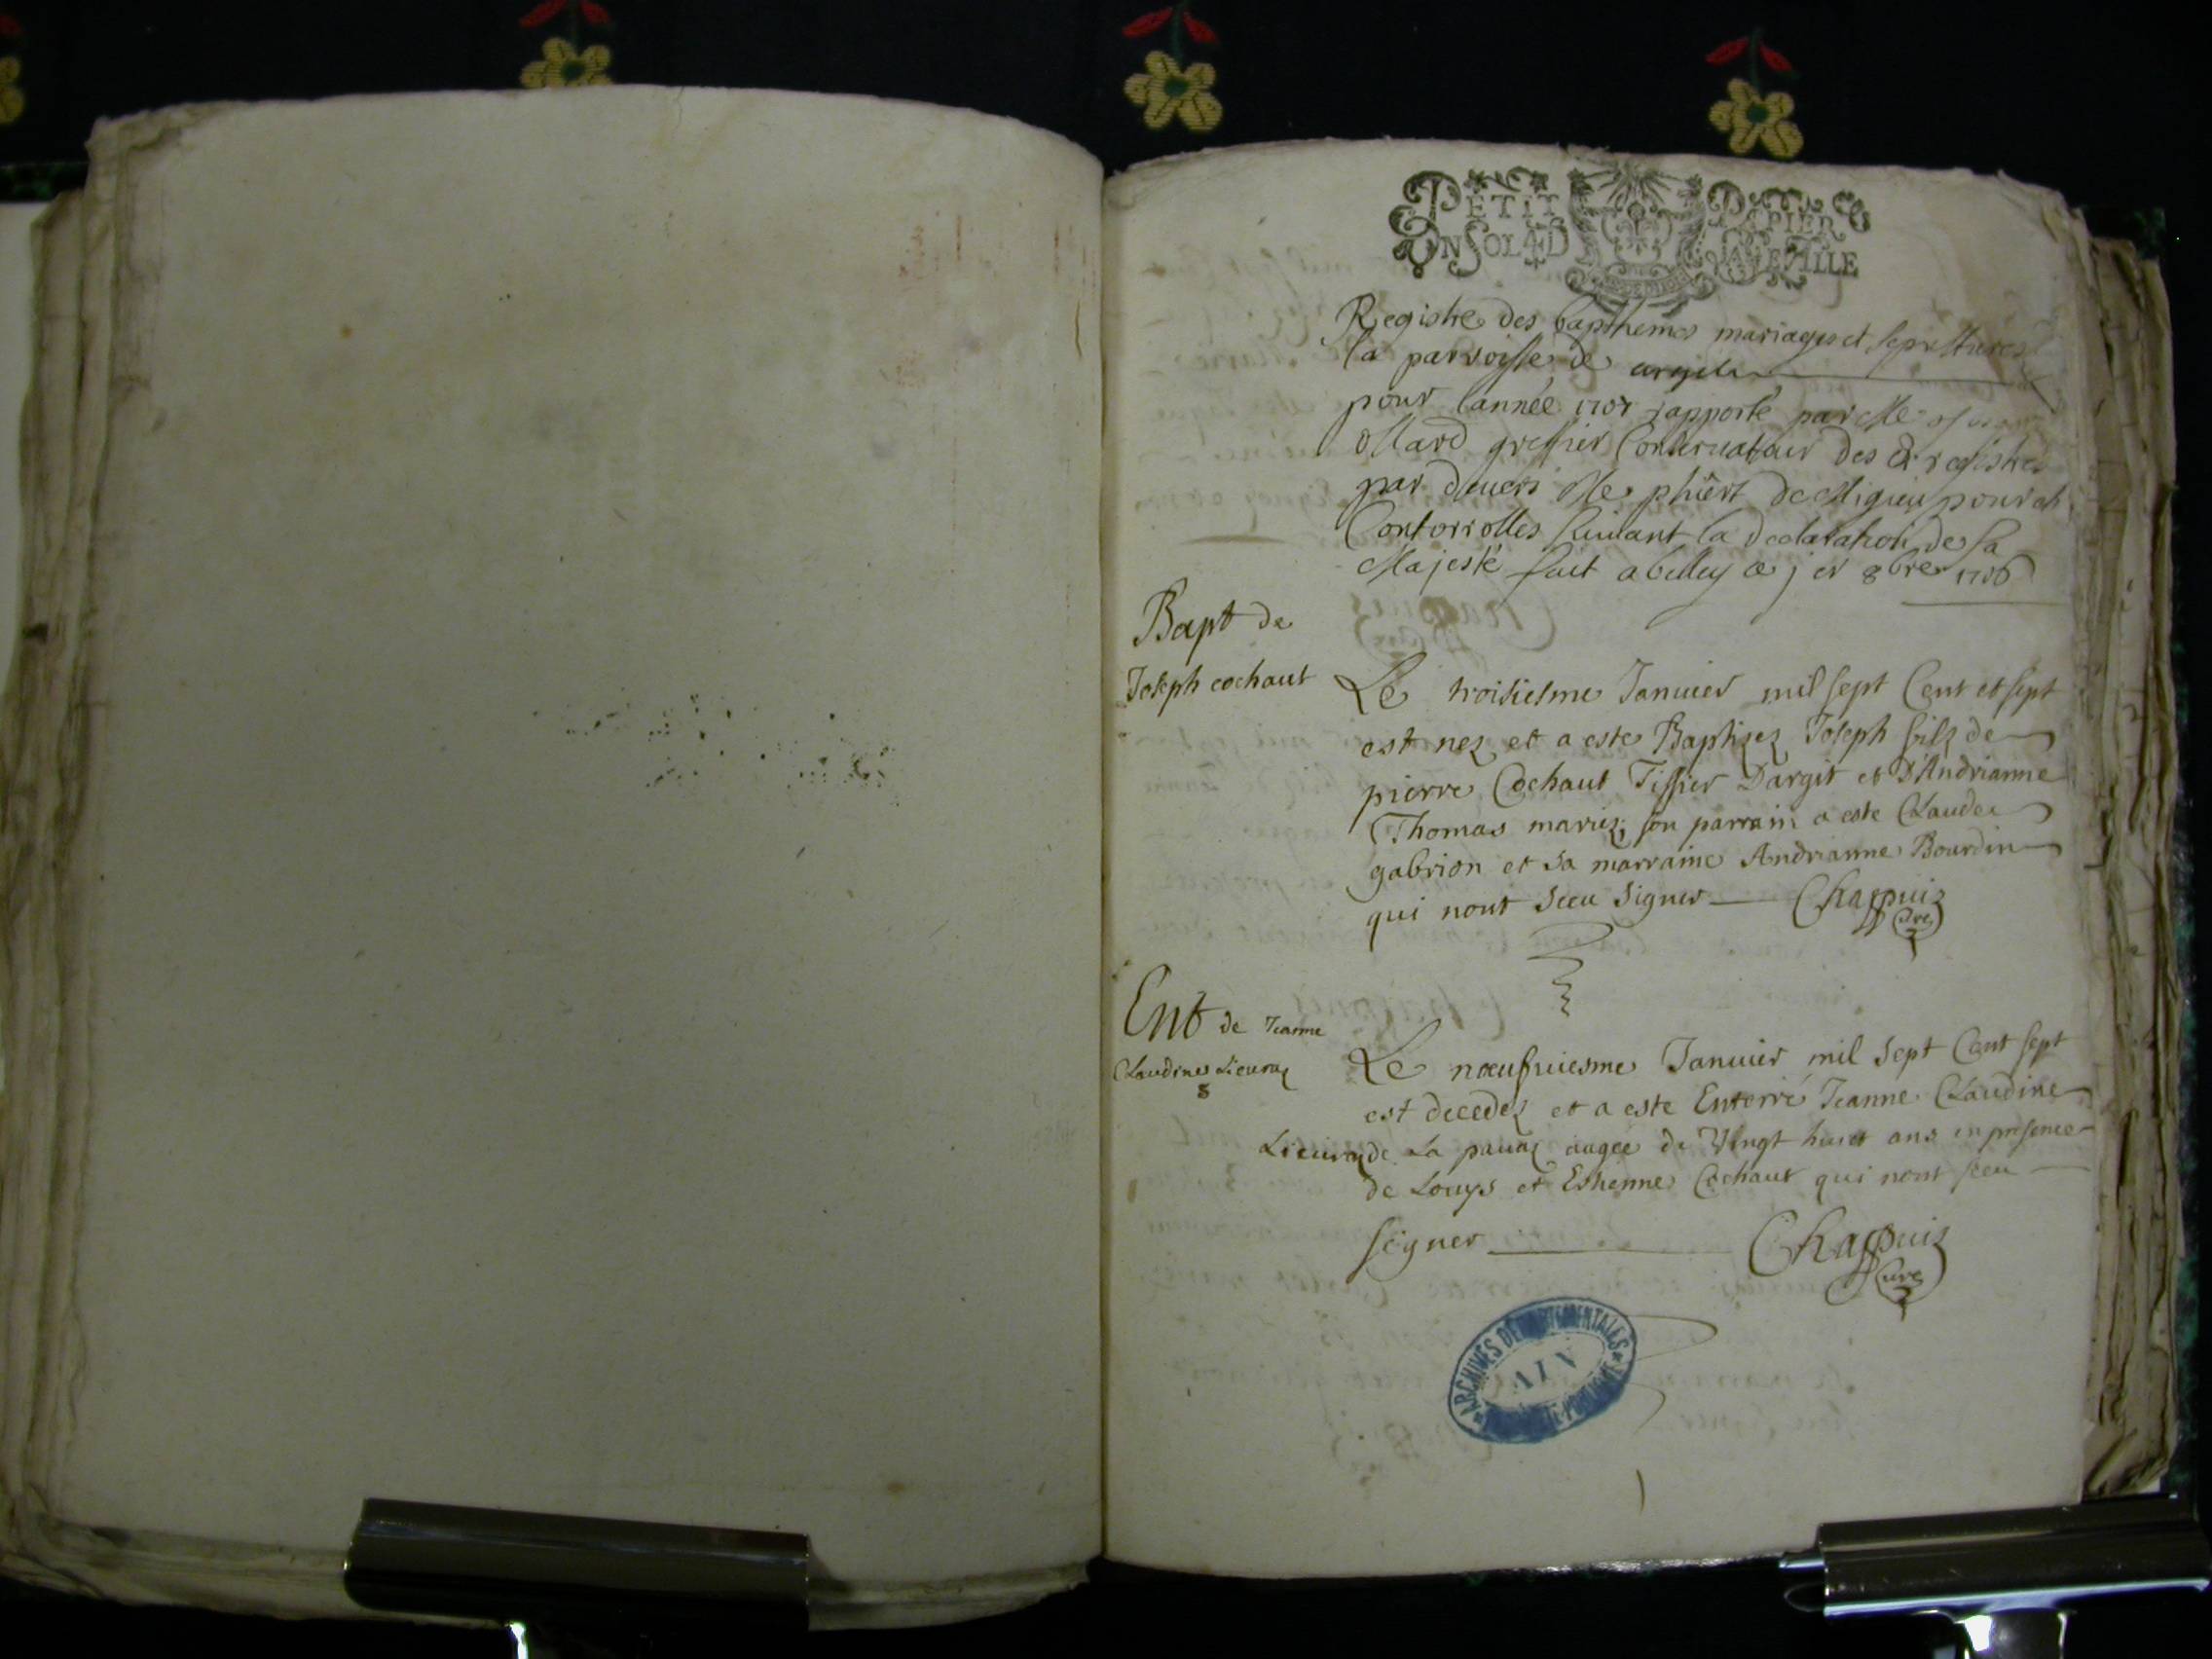 PETIT PAPIER
UN SOL LA FEUILLE
Registre des bapthemes mariages et sepultures
la parroisse de
pour lannée 1707 rapporté par Me
ollard greffier Conservateur des d. registres
par devers Me phûert de Migieu pour
Contorrolles suivant la declaration de sa
Majesté fait a belley ce j er 8bre 1706
Bapt de
Joseph cochaut
Le troisiesme Januier mil sept Cent et sept
est nez et a este Baptizez Joseph filz de
pierre Cochaut Tissier Dargit et D'Andrianne
Thomas mariez, son parrain a este Claude
gabrion et sa marraine Andrianne Bourdin
qui nont sceu signer Chappuis
Cure
Ent de Jeanne
Claudine Lieuraz
8
Le nœufuiesme Januier mil sept Cent sept
est decedez et a este Enterré Jeanne Claudine
Lieuraz de La pauaz augee de Vingt huict ans en presence
de Louys et Estienne Cochaut qui nont sceu
signer Chappuis
Cure
ARCHIVES DÉPARTEMENTALES
AIN